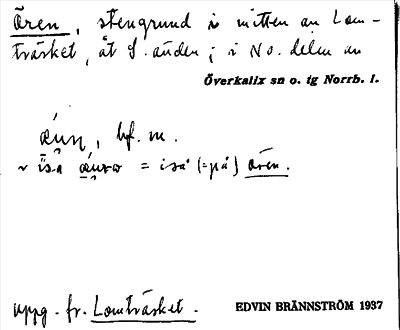 Ören, stengrund i mitten av Lom-
träsket, åt S. änden; i No. delen av
Överkalix sn o. tg Norrb. l.
bf. m.
= iså (=på) ören.
uppg. fr. Lomträsket.
EDVIN BRÄNNSTRÖM 1937